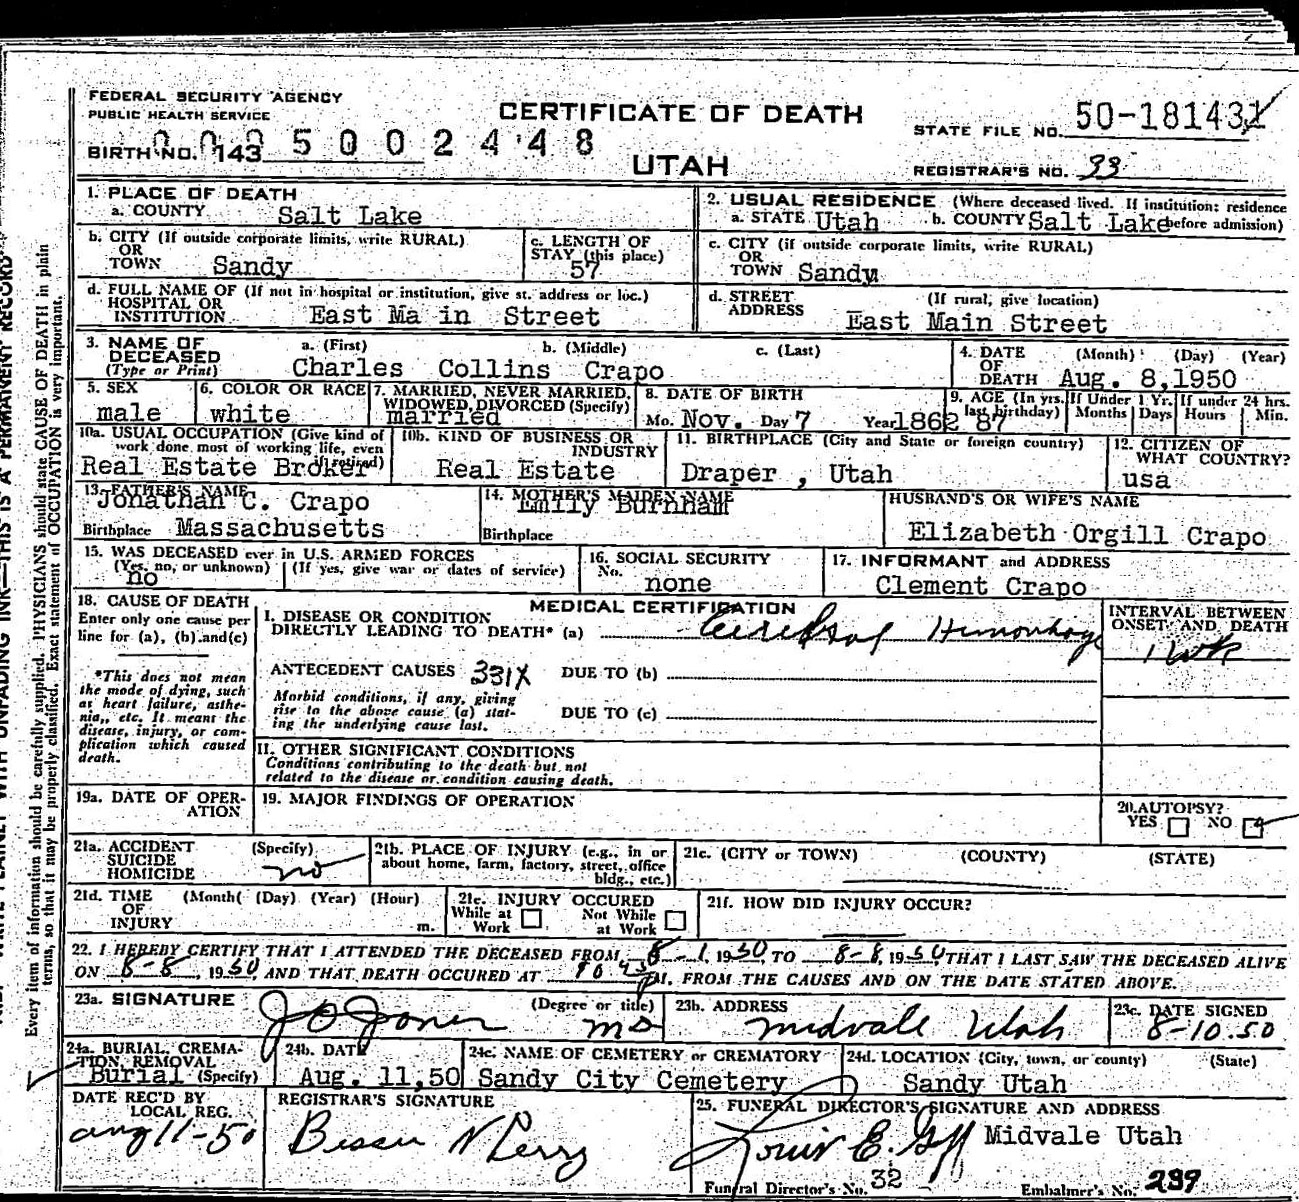 FEDERAL SECURITY AGENCY
PUBLIC HEALTH SERVICE
CERTIFICATE OF DEATH
STATE FILE NO. 50-181431
BIRTH NO. 143 0095002448
UTAH
REGISTRAR'S NO. 33
1. PLACE OF DEATH
a. COUNTY Salt Lake
2. USUAL RESIDENCE (Where deceased lived. If institution: residence before admission)
a. STATE Utah b. COUNTY Salt Lake
b. CITY (If outside corporate limits, write RURAL)
OR
TOWN Sandy
c. LENGTH OF
STAY (this place)
57
c. CITY (if outside corporate limits, write RURAL)
OR
TOWN Sandy
d. FULL NAME OF (If not in hospital or institution, give st. address or loc.)
HOSPITAL OR
INSTITUTION East Ma in Street
d. STREET (If rural, give location)
ADDRESS East Main Street
3. NAME OF a. (First) b. (Middle) c. (Last)
DECEASED
(Type or Print) Charles Collins Crapo
4. DATE (Month) (Day) (Year)
OF
DEATH Aug. 8,1950
5. SEX
male
6. COLOR OR RACE
white
7. MARRIED, NEVER MARRIED,
WIDOWED, DIVORCED (Specify)
married
8. DATE OF BIRTH
Mo. Nov. Day 7 Year 1862
9. AGE (In yrs. last birthday) 87
If Under 1 Yr. Months Days
If under 24 hrs. Hours Min.
10a. USUAL OCCUPATION (Give kind of
work done most of working life, even
if retired)
Real Estate Broker
10b. KIND OF BUSINESS OR
INDUSTRY
Real Estate
11. BIRTHPLACE (City and State or foreign country)
Draper , Utah
12. CITIZEN OF
WHAT COUNTRY?
usa
13. FATHER'S NAME
Jonathan C. Crapo
Birthplace Massachusetts
14. MOTHER'S MAIDEN NAME
Emily Burnham
Birthplace
HUSBAND'S OR WIFE'S NAME
Elizabeth Orgill Crapo
15. WAS DECEASED ever in U.S. ARMED FORCES
(Yes, no, or unknown) (If yes, give war or dates of service)
no
16. SOCIAL SECURITY
No. none
17. INFORMANT and ADDRESS
Clement Crapo
18. CAUSE OF DEATH
Enter only one cause per
line for (a), (b) and (c)
*This does not mean
the mode of dying, such
as heart failure, asthe-
nia,, etc. It meant the
disease, injury, or com-
plication which caused
death.
MEDICAL CERTIFICATION
I. DISEASE OR CONDITION
DIRECTLY LEADING TO DEATH* (a) Cerebral Hemorrhage
INTERVAL BETWEEN
ONSET AND DEATH
1 wk
ANTECEDENT CAUSES 331X DUE TO (b)
Morbid conditions, if any, giving
rise to the above cause (a) stat-
ing the underlying cause last.
DUE TO (c)
II. OTHER SIGNIFICANT CONDITIONS
Conditions contributing to the death but not
related to the disease or condition causing death.
19a. DATE OF OPER-
ATION
19. MAJOR FINDINGS OF OPERATION
20. AUTOPSY?
YES NO
21a. ACCIDENT (Specify)
SUICIDE
HOMICIDE no
21b. PLACE OF INJURY (e.g., in or
about home, farm, factory, street, office
bldg., etc.)
21c. (CITY or TOWN) (COUNTY) (STATE)
21d. TIME (Month( (Day) (Year) (Hour)
OF
INJURY m.
21e. INJURY OCCURED
While at Work Not While at Work
21f. HOW DID INJURY OCCUR?
22. I HEREBY CERTIFY THAT I ATTENDED THE DECEASED FROM 8-1, 1950 TO 8-8, 1950 THAT I LAST SAW THE DECEASED ALIVE
ON 8-8 1950 AND THAT DEATH OCCURED AT 10 45 PM. FROM THE CAUSES AND ON THE DATE STATED ABOVE.
23a. SIGNATURE (Degree or title)
J O Jones MD
23b. ADDRESS
Midvale Utah
23c. DATE SIGNED
8-10-50
24a. BURIAL, CREMA-
TION, REMOVAL
Burial (Specify)
24b. DATE
Aug. 11,50
24c. NAME OF CEMETERY or CREMATORY
Sandy City Cemetery
24d. LOCATION (City, town, or county) (State)
Sandy Utah
DATE REC'D BY
LOCAL REG.
aug 11-50
REGISTRAR'S SIGNATURE
Perry
25. FUNERAL DIRECTOR'S SIGNATURE AND ADDRESS
Louis E. Goff Midvale Utah
Funeral Director's No. 32 Embalmer's No. 299
Every item of information should be carefully supplied. PHYSICIANS should state CAUSE OF DEATH in plain
terms, so that it may be properly classified. Exact statement of OCCUPATION is very important.
WITH UNFADING INK—THIS IS A PERMANENT RECORD